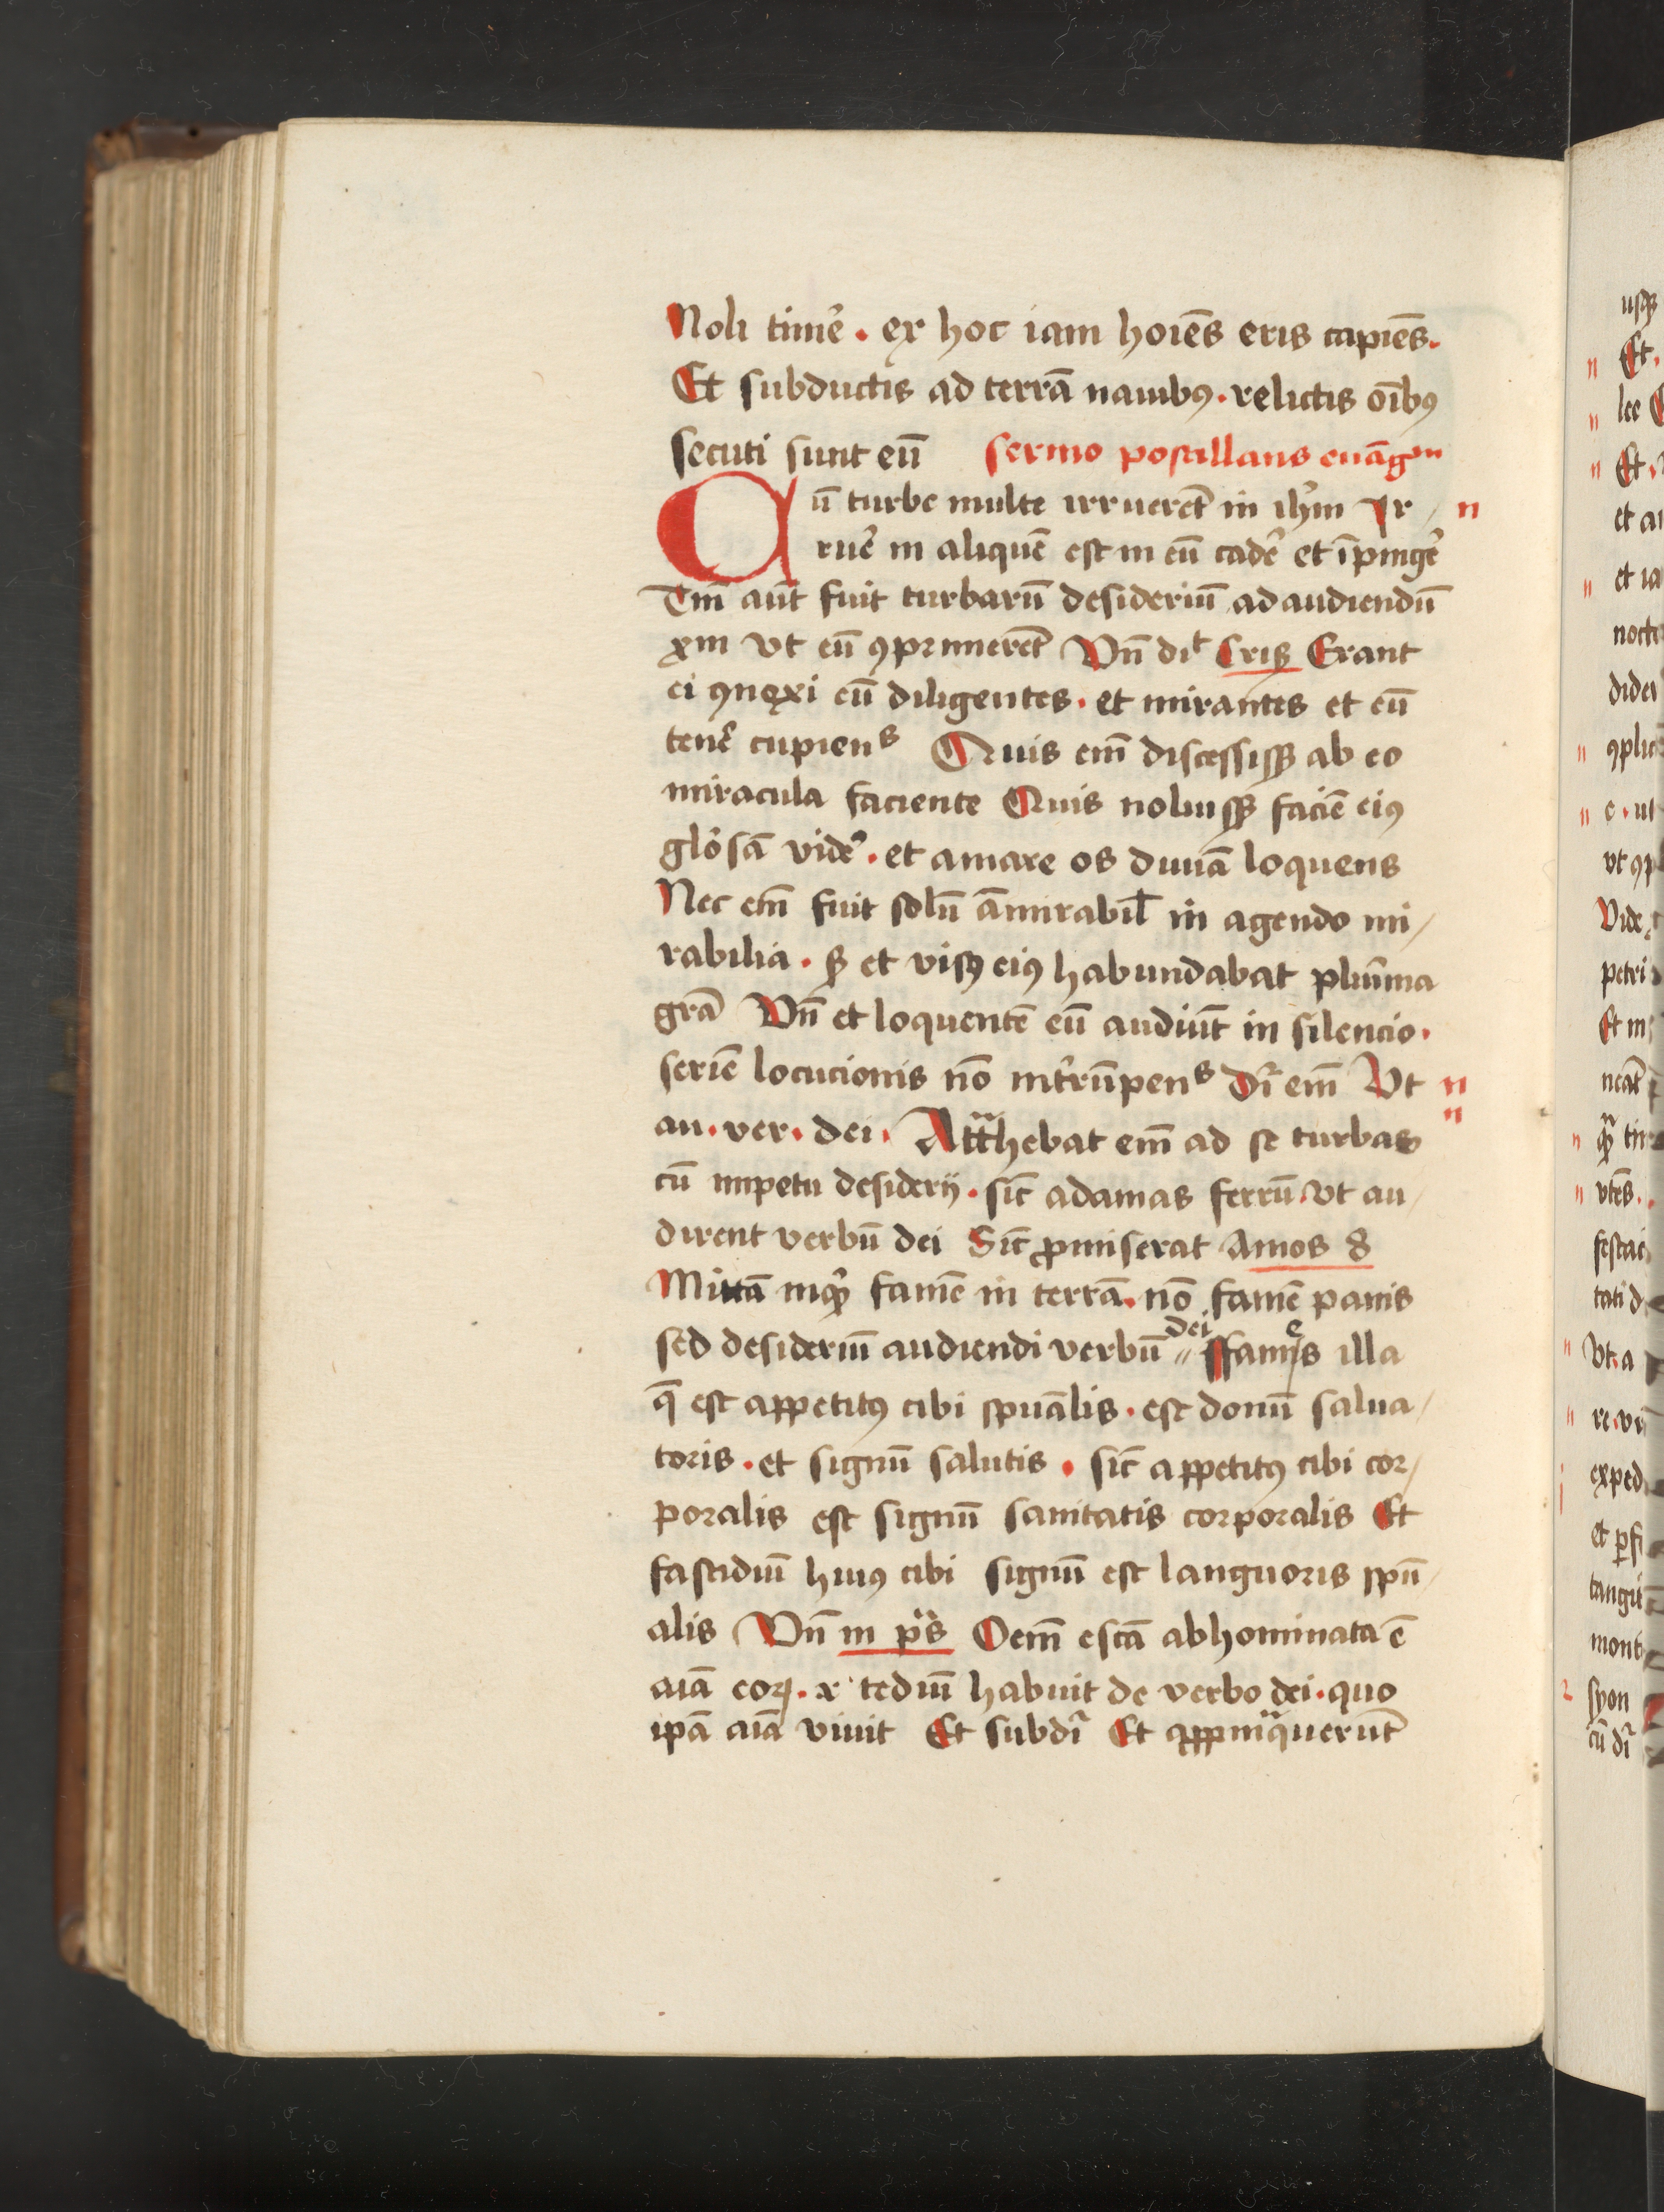 Noli timē⸝ . ex hoc iam hoīes eris capiēs.
Et subductis ad terrā nauibꝰ . relictis oībꝰ
secuti sunt eū sermo postillans euāgᵐ
Cū turbe multe irruerēt in ihm̄ Ir/
ruē in aliquē est in eū cadē et īpingē
Tm̄ aūt fuit turbarū desideriū ad audiendū
xm̄ vt eū ꝯprimerēt Vn̄ diᵗ Crisꝰ Erant
ei ꝯnexi eū diligentes . et mirantes et eū
tenē cupienˢ Quis em̄ discessissꝫ ab eo
miracula faciente Quis noluissꝫ faciē eiꝰ
glōsā vidē . et amare os diuīa loquens
Nec em̄ fuit solū āmirabil̄ in agendo mi/
rabilia . sꝫ et visꝰ eiꝰ habundabat plurīma
grā Vn̄ et loquentē eū audiūt in silencio .
seriē locucionis nō int̄rūpenˢ Dr̄ em̄ Vt
au . ver . dei . Attᵃhebat em̄ ad se turbas
cū impetu desiderij . sic̄ adamas ferrū . vt au/
dirent verbū dei Sic̄ ꝓmiserat Amos 8
Mittā inqꝫ famē in terrā . nō famē panis
sed desideriū audiendi verbū dei // fames illa
q̄ est appetitꝰ cibi spūalis . est donū salua/
toris . et signū salutis . sic̄ appetitꝰ cibi cor/
poralis est signū sanitatis corporalis Et
fastidiū huiꝰ cibi signū est languoris spū/
alis Vn̄ in pˢ̄ Oem̄ escā abhominata ē
aīa eoꝝ . & tediū habuit de verbo dei . quo
ipā aīa viuit Et subdr̄ Et appᵒpinquauerūt